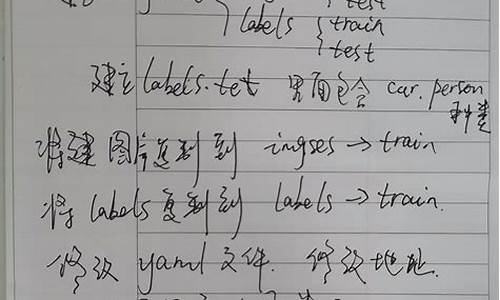 test
labels { train
test
建立 labels.tet 里面包含 car. person
种类
将建图片复制到 imgses → train
将 labels 复制到 labels → train.
修改 yaml 文件. 修改地址.